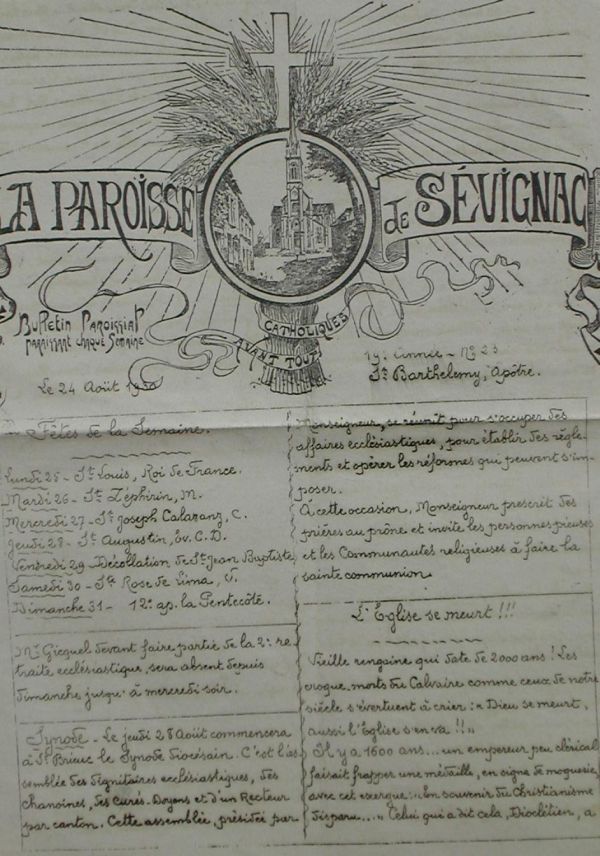 LA PAROISSE de SÉVIGNAC
CATHOLIQUES
AVANT TOUT
Bulletin Paroissial
paraissant chaque Semaine
Le 24 Août 1930
19e Année - No 23
St Barthelemy, Apôtre.
Fêtes de la Semaine.
Lundi 25 - St Louis, Roi de France.
Mardi 26 - St Zéphirin, M.
Mercredi 27 - St Joseph Calasanz, C.
Jeudi 28 - St Augustin, Ev. C. D.
Vendredi 29 - Décollation de St Jean Baptiste
Samedi 30 - Ste Rose de Lima, V.
Dimanche 31 - 12e ap. la Pentecôte.
Mr Gicquel devant faire partie de la 2e re
traite ecclésiastique, sera absent depuis
dimanche jusqu'à mercredi soir.
Synode - Le jeudi 28 Août commencera
à St Brieuc le Synode diocésain. C'est l'as
semblée des dignitaires ecclésiastiques, des
Chanoines, des Curés-Doyens et d'un Recteur
par canton. Cette assemblée, présidée par
Monseigneur, se réunit pour s'occuper des
affaires ecclésiastiques, pour établir des règle-
ments et opérer les réformes qui peuvent s'im-
poser.
A cette occasion, Monseigneur prescrit des
prières au prône et invite les personnes pieuses
et les Communautés religieuses à faire la
sainte communion
L'Eglise se meurt !!!
Vieille rengaine qui date de 2000 ans ! Les
croque-morts du Calvaire comme ceux de notre
siècle s'évertuent à crier : « Dieu se meurt,
aussi l'Eglise s'en va !! »
Il y a 1600 ans... un empereur peu clérical
faisait frapper une médaille, en signe de moquerie,
avec cet exergue : « En souvenir du Christianisme
disparu .... » Celui qui a dit cela, Dioclétien, a